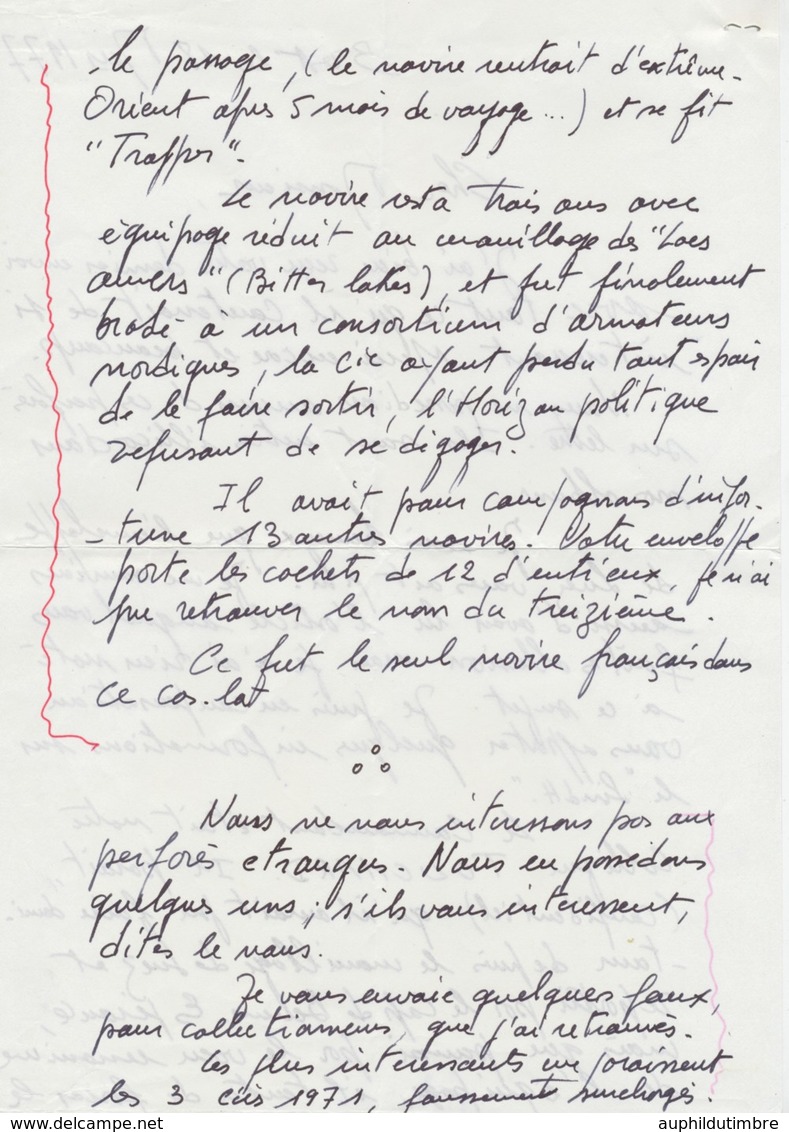 - le passage, (le navire rentrait d'extrême-
Orient après 5 mois de voyage ...) et se fit
"Trapper".
Le navire resta trois ans avec
équipage réduit au mouillage des "Lacs
amers" (Bitter lakes), et fut finalement
bradé à un consortium d'armateurs
nordiques, la Cie ayant perdu tout espoir
de le faire sortir, l'Horizon politique
refusant de se dégager.
Il avait pour compagnons d'infor-
- tune 13 autres navires. Votre enveloppe
porte les cachets de 12 d'entr'eux, je n'ai
pu retrouver le nom du treizième.
Ce fut le seul navire français dans
ce cas-là
Nous ne nous intéressons pas aux
perforés étrangers. Nous en possédons
quelques uns ; s'ils vous intéressent,
dites le nous.
Je vous envoie quelques faux,
pour collectionneurs, que j'ai retrouvés.
Les plus intéressants me paraissent
les 3 1971, faussement surchargés.
auphildutimbre